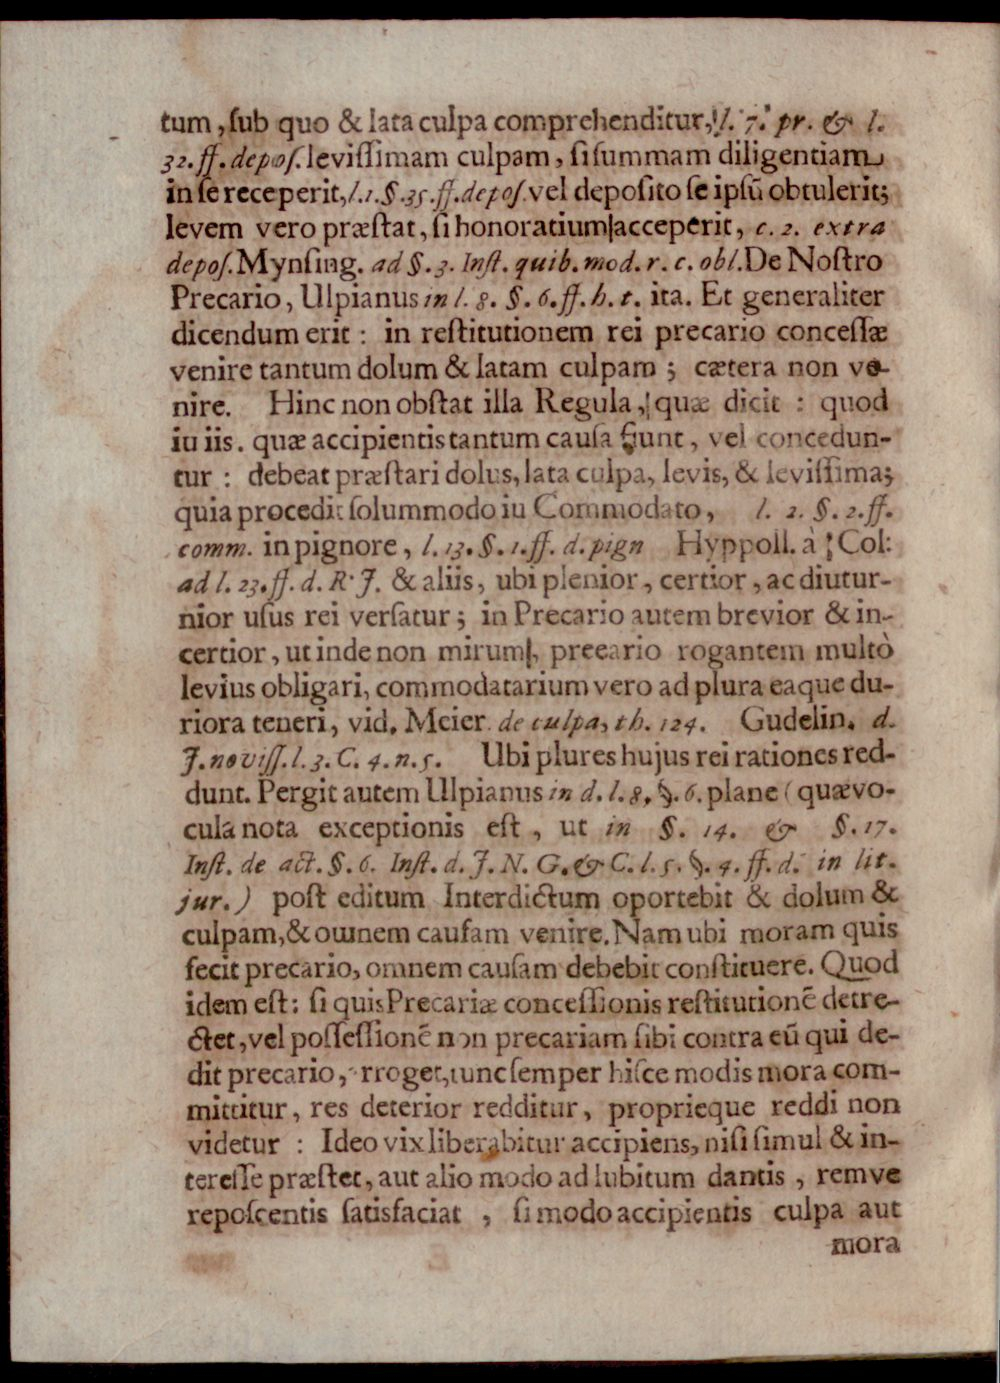 tum, ſub quo & lata culpa comprehenditur, l. 7. pr. & l.
32. ff. depoſ. leviſſimam culpam, ſi ſummam diligentiam
in ſe receperit, l. 1. §. 35. ff. depoſ. vel depoſito ſe ipſū obtulerit;
levem vero præſtat, ſi honoratium acceperit, c. 2. extra
depoſ. Mynſing. ad §. 3. Inſt. quib. mod. r. c. obl. De Noſtro
Precario, Ulpianus in l. 8. §. 6. ff. h. t. ita. Et generaliter
dicendum erit: in reſtitutionem rei precario conceſſæ
venire tantum dolum & latam culpam; cætera non ve-
nire. Hinc non obſtat illa Regula, quæ dicit: quod
iu iis. quæ accipientis tantum cauſa ſunt, vel concedun-
tur: debeat præſtari dolus, lata culpa, levis, & leviſſima;
quia procedit ſolummodo iu Commodato, l. 2. §. 2. ff.
comm. in pignore, l. 13. §. 1. ff. d. pign Hyppoll. à Col:
ad l. 23. ff. d. R. J. & aliis, ubi plenior, certior, ac diutur-
nior uſus rei verſatur; in Precario autem brevior & in-
certior, ut inde non mirum, preeario rogantem multò
levius obligari, commodatarium vero ad plura eaque du-
riora teneri, vid. Meier. de culpa, th. 124. Gudelin. d.
J. noviſſ. l. 3. C. 4. n. 5. Ubi plures hujus rei rationes red-
dunt. Pergit autem Ulpianus in d. l. 8. §. 6. plane (quæ vo-
cula nota exceptionis eſt, ut in §. 14. & §. 17.
Inſt. de act. §. 6. Inſt. d. J. N. G. & C. l. 5. §. 4. ff. d. in lit.
jur.) poſt editum Interdictum oportebit & dolum &
culpam, & ownem cauſam venire. Nam ubi moram quis
fecit precario, omnem cauſam debebit conſtituere. Quod
idem eſt: ſi quis Precariæ conceſſionis reſtitutionē detre-
ctet, vel poſſeſſionē non precariam ſibi contra eū qui de-
dit precario, rroget, tunc ſemper hiſce modis mora com-
mittitur, res deterior redditur, proprieque reddi non
videtur: Ideo vix liberabitur accipiens, niſi ſimul & in-
tereſſe præſtet, aut alio modo ad lubitum dantis, remve
repoſcentis ſatisfaciat, ſi modo accipientis culpa aut
mora